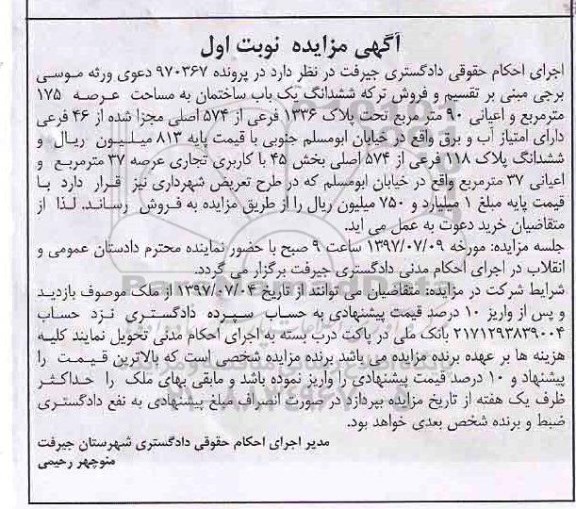 آگهی مزایده نوبت اول
اجرای احکام حقوقی دادگستری جیرفت در نظر دارد در پرونده ۹۷۰۳۶۷ دعوی ورثه موسی
برجی مبنی بر تقسیم و فروش ترکه ششدانگ یک باب ساختمان به مساحت عرصه ۱۷۵
مترمربع و اعیانی ۹۰ متر مربع تحت پلاک ۱۳۳۶ فرعی از ۵۷۴ اصلی مجزا شده از ۴۶ فرعی
دارای امتیاز آب و برق واقع در خیابان ابومسلم جنوبی با قیمت پایه ۸۱۳ میلیون ریال و
ششدانگ پلاک ۱۱۸ فرعی از ۵۷۴ اصلی بخش ۴۵ با کاربری تجاری عرصه ۳۷ مترمربع و
اعیانی ۳۷ مترمربع واقع در خیابان ابومسلم که در طرح تعریض شهرداری نیز قرار دارد با
قیمت پایه مبلغ ۱ میلیارد و ۷۵۰ میلیون ریال را از طریق مزایده به فروش رساند. لذا از
متقاضیان خرید دعوت به عمل می آید.
جلسه مزایده: مورخه ۱۳۹۷/۰۷/۰۹ ساعت ۹ صبح با حضور نماینده محترم دادستان عمومی و
انقلاب در اجرای احکام مدنی دادگستری جیرفت برگزار می گردد.
شرایط شرکت در مزایده: متقاضیان می توانند از تاریخ ۱۳۹۷/۰۷/۰۴ از ملک موصوف بازدید
و پس از واریز ۱۰ درصد قیمت پیشنهادی به حساب سپرده دادگستری نزد حساب
۲۱۷۱۲۹۳۸۳۹۰۰۴ بانک ملی در پاکت درب بسته به اجرای احکام مدنی تحویل نمایند کلیه
هزینه ها بر عهده برنده مزایده می باشد برنده مزایده شخصی است که بالاترین قیمت را
پیشنهاد و ۱۰ درصد قیمت پیشنهادی را واریز نموده باشد و مابقی بهای ملک را حداکثر
ظرف یک هفته از تاریخ مزایده بپردازد در صورت انصراف مبلغ پیشنهادی به نفع دادگستری
ضبط و برنده شخص بعدی خواهد بود.
مدیر اجرای احکام حقوقی دادگستری شهرستان جیرفت
منوچهر رحیمی